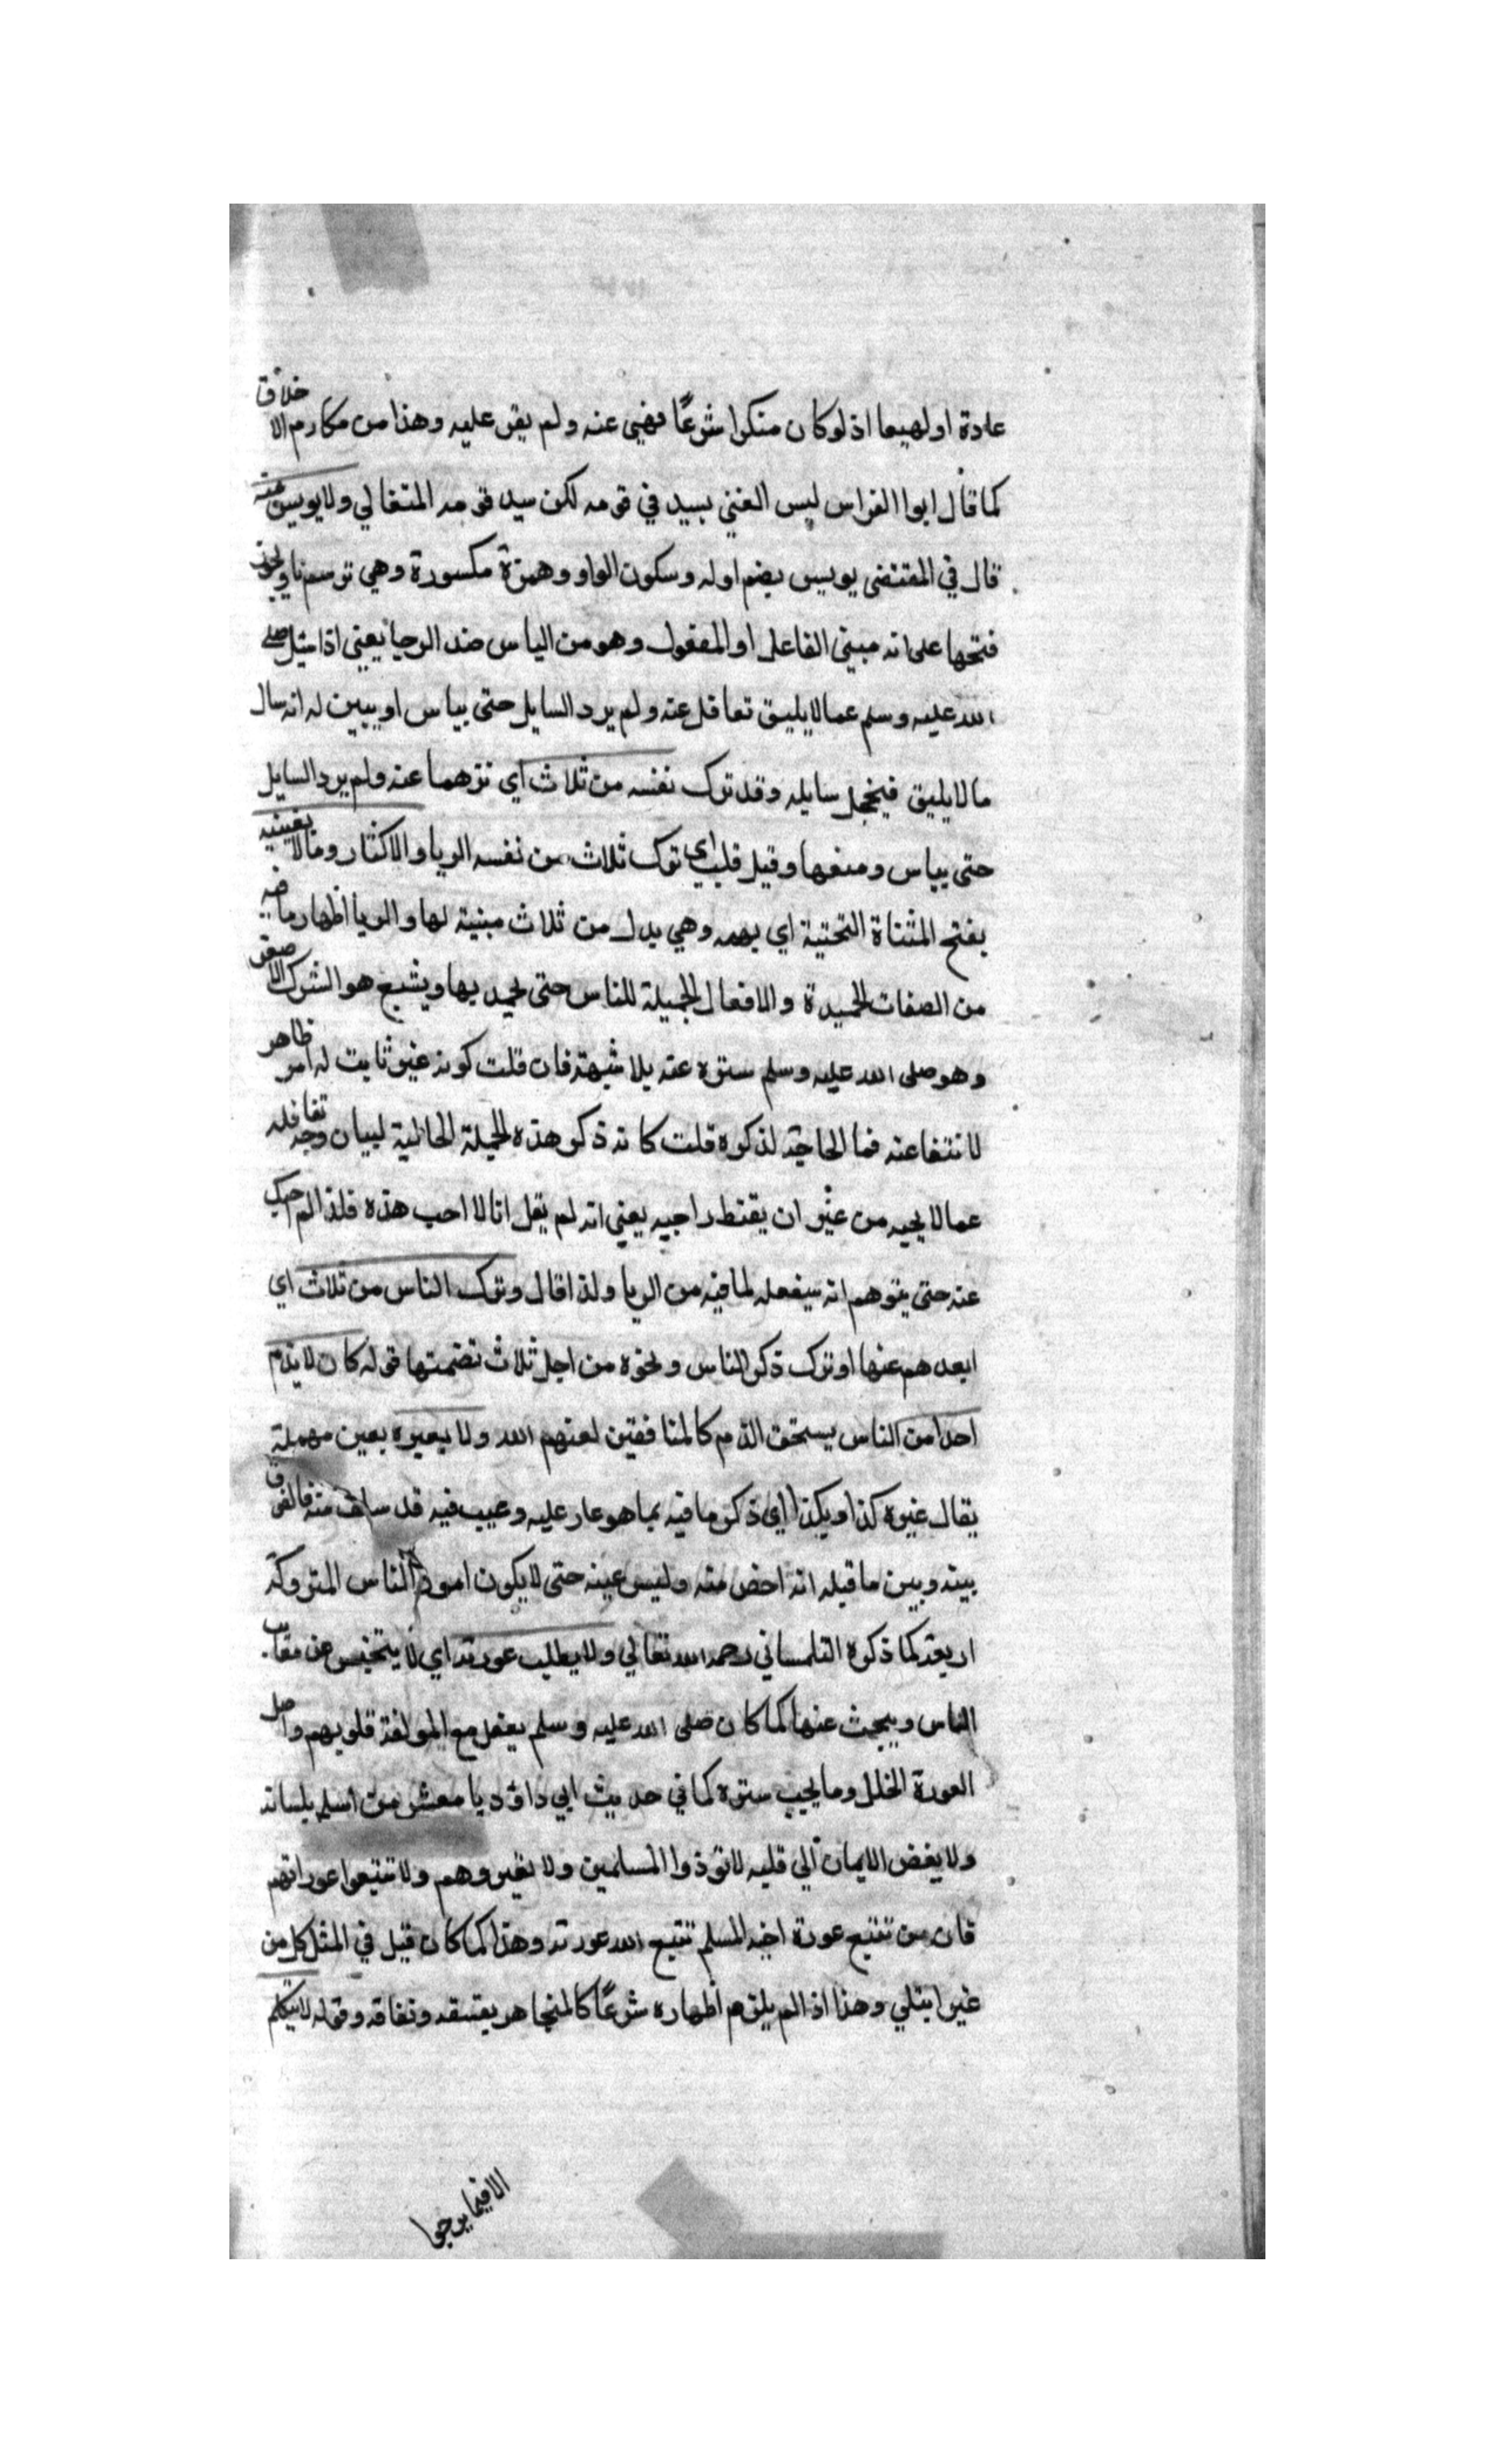 عادة اولهيما اذ لو كان منكرا شرعًا فهني عنه ولم يقر عليه وهذا من مكارم الاخلاق
كما قال ابوا الفراس ليس الغني بسيد في قومه لكن سيد قومه المتغالي ولا يويس منه
قال في المقتضى يويس بضم اوله وسكون الواو وهمزة مكسورة وهي ترسم يا ويجوز
فتحها على انه مبني الفاعل او المفعول وهو من الياس ضد الرجا يعني اذا سئل صلى
الله عليه وسلم عما لا يليق تغافل عنه ولم يرد السايل حتى يياس او يبين له انه سال
ما لا يليق فيخجل سايله وقد ترك نفسه من ثلاث اي نزهها عنه ولم يرد السايل
حتى يياس ومنعها وقيل قلب اي ترك ثلاث من نفسه الريا والاكثار ومالا يعنيه
بفتح المثناة التحتية اي يهمه وهي بدل من ثلاث مبنية لها والريا اظهار ما فيه
من الصفات الحميدة والافعال الجميلة للناس حتى يحمد بها ويشيع هو الشرك الاصغر
وهو صلى الله عليه وسلم ستره عنه بلا شبهة فان قلت كونه غير ثابت له امر ظاهر
لانتفا عنه فما الحاجة لذكره قلت كانه ذكر هذه الجملة الحالية لبيان وجه تغافله
عما لا يحبه من غير ان يقنط راجيه يعني انه لم يقل انا لا احب هذه فلذا لم احبك
عنه حتى يتوهم انه سيفعله لما فيه من الريا ولذا قال وترك الناس من ثلاث اي
ابعدهم عنها او ترك ذكر الناس ونحوه من اجل ثلاث تضمنتها قوله كان لا يذم
احدا من الناس يستحق الذم كالمنافقين لعنهم الله ولا يعيره بعين مهملة
يقال غيره كذا وبكذا اي ذكر ما فيه بما هو عار عليه وعيب فيه قد سلف منه فالفرق
بينه وبين ما قبله انه اخص منه وليس عينه حتى لا يكون امور الناس المتروكة
اربعة كما ذكره التلمساني رحمه الله تعالي ولا يطلب عورته اي لا يتجسس عن معايب
الناس ويبحث عنها كما كان صلى الله عليه وسلم يفعل مع المولفة قلوبهم واصل
العورة الخلل وما يجب ستره كما في حديث ابي داود يا معشر من اسلم بلسانه
ولا يفض الايمان الي قلبه لا توذوا المسلمين ولا تعيروهم ولا تتبعوا عوراتهم
فان من تتبع عورة اخيه المسلم تتبع الله عورته وهذا كما كان قيل في المثل كل من
غير ابتلي وهذا اذا لم يلزم اظهاره شرعًا كالمتجاهر بفسقه ونفاقه وقوله لا يتكلم
الا فيما يرجوا